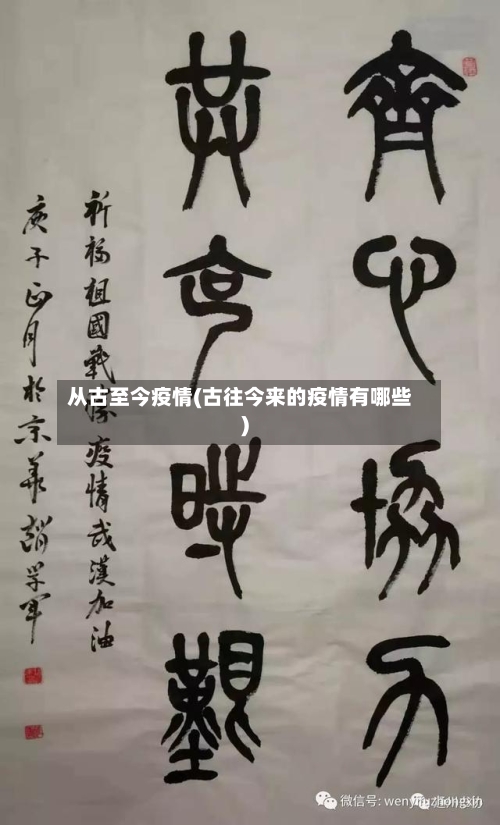 齊心協力
共克時艱
祈福祖國戰勝疫情武漢加油
庚子正月於京華趙学軍
从古至今疫情(古往今来的疫情有哪些
)
微信号: